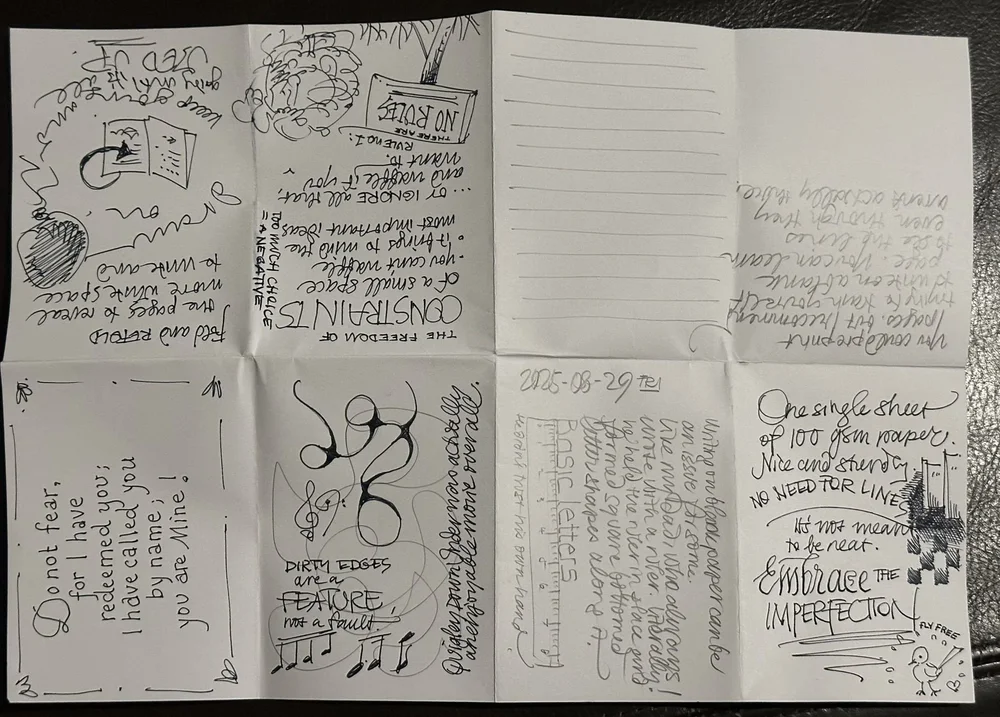 Do not fear,
for I have
redeemed you;
I have called you
by name;
you are Mine!
DIRTY EDGES
are a
FEATURE,
not a fault
Quigley Down Under was actually
an enjoyable movie overall.
2025-08-29 FRI
Writing on blank paper can be
an issue for some.
Like my dad who always
wrote with a ruler. Literally!
He'd hold the ruler in place and
formed square bottomed
letter shapes along it.
Basic letters
One single sheet
of 100 gsm paper.
Nice and sturdy
NO NEED FOR LINE
It's not mean
to be neat.
Embrace THE
IMPERFECTION
FLY FREE
You could preprint
pages, but I recommend
trying to teach yourself
to write on a blank
page. You can learn
to see the lines
even though they
aren't actually there.
THE FREEDOM OF
CONSTRAINTS
of a small space
• you can't waffle
• it brings to mind the
most important ideas
TOO MUCH CHOICE
= A NEGATIVE
... or IGNORE all that,
and waffle if you
want to.
RULE no1:
THERE ARE
NO RULES
Fold and RETOLD
the pages to reveal
more white space
to write and
draw on.
keep going till all
USED UP